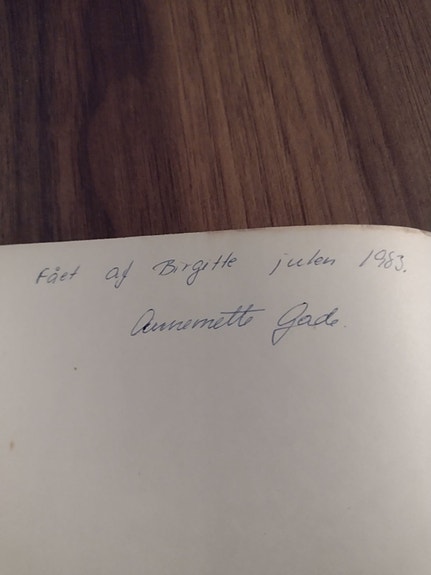 Fået af Birgitte julen 1983.
Annemette Gade.